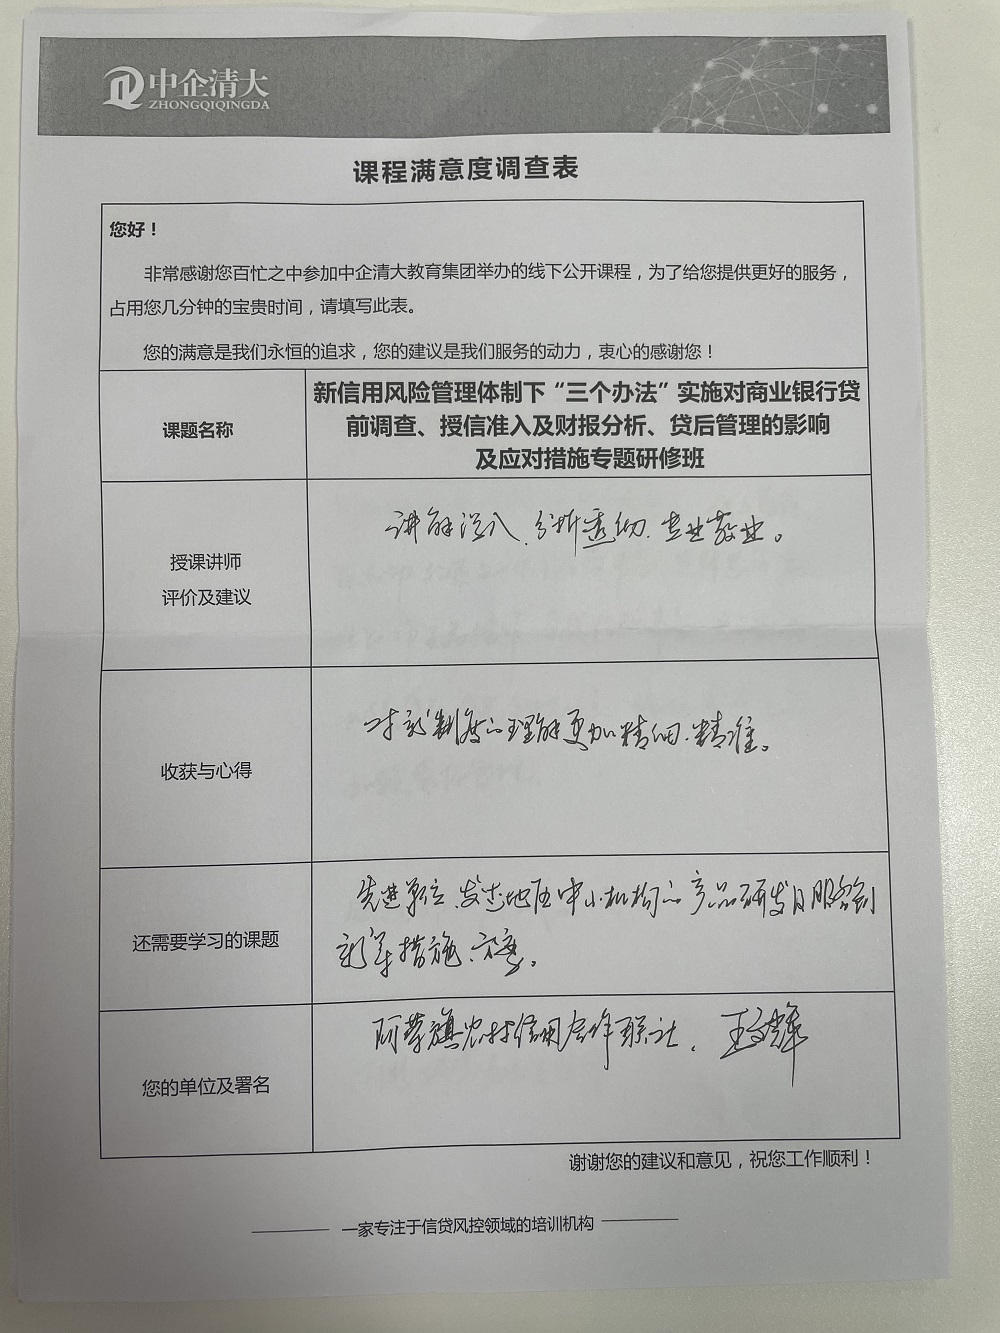 中企清大
ZHONGQIQINGDA
课程满意度调查表
您好！
非常感谢您百忙之中参加中企清大教育集团举办的线下公开课程，为了给您提供更好的服务，
占用您几分钟的宝贵时间，请填写此表。
您的满意是我们永恒的追求，您的建议是我们服务的动力，衷心的感谢您！
课题名称
新信用风险管理体制下“三个办法”实施对商业银行贷
前调查、授信准入及财报分析、贷后管理的影响
及应对措施专题研修班
授课讲师
评价及建议
讲解深入、分析透彻、专业敬业。
收获与心得
对新制度的理解更加精细、精准。
还需要学习的课题
先进 发达地区中小机构的产品研发及服务创
新 措施、方案。
您的单位及署名
阿荣旗农村信用合作联社，王文辉
谢谢您的建议和意见，祝您工作顺利！
一家专注于信贷风控领域的培训机构